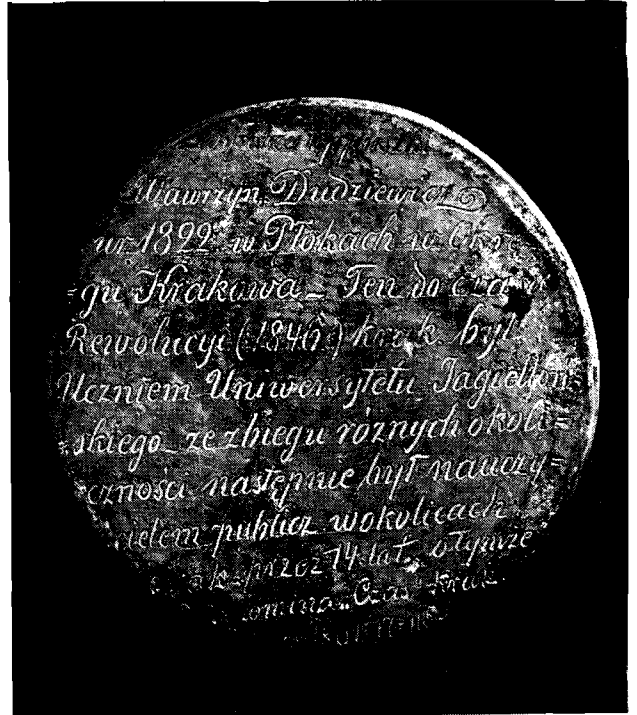 Wawrzyn Dudziewicz
ur 1822 w Płokach w Okrę=
=gu Krakowa_ Ten do czasu
Rewolucyi (1846) krak był
Uczniem Uniwersytetu Jagielloń
=skiego ze zbiegu różnych okoli=
czności następnie był nauczy=
cielem publicz w okolicach
przez 14 lat, o tymże
"Czas" Krak